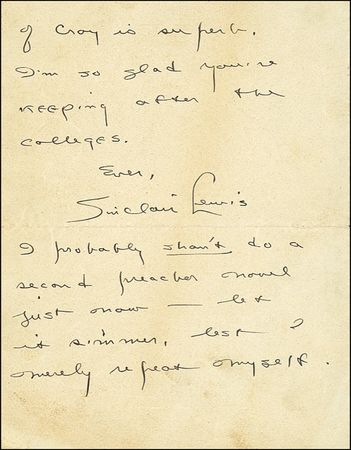 of Croy is superb.
I'm so glad you're
keeping after the
colleges.
Ever,
Sinclair Lewis
I probably shan't do a
second preacher novel
just now — let
it simmer, lest I
merely repeat myself.